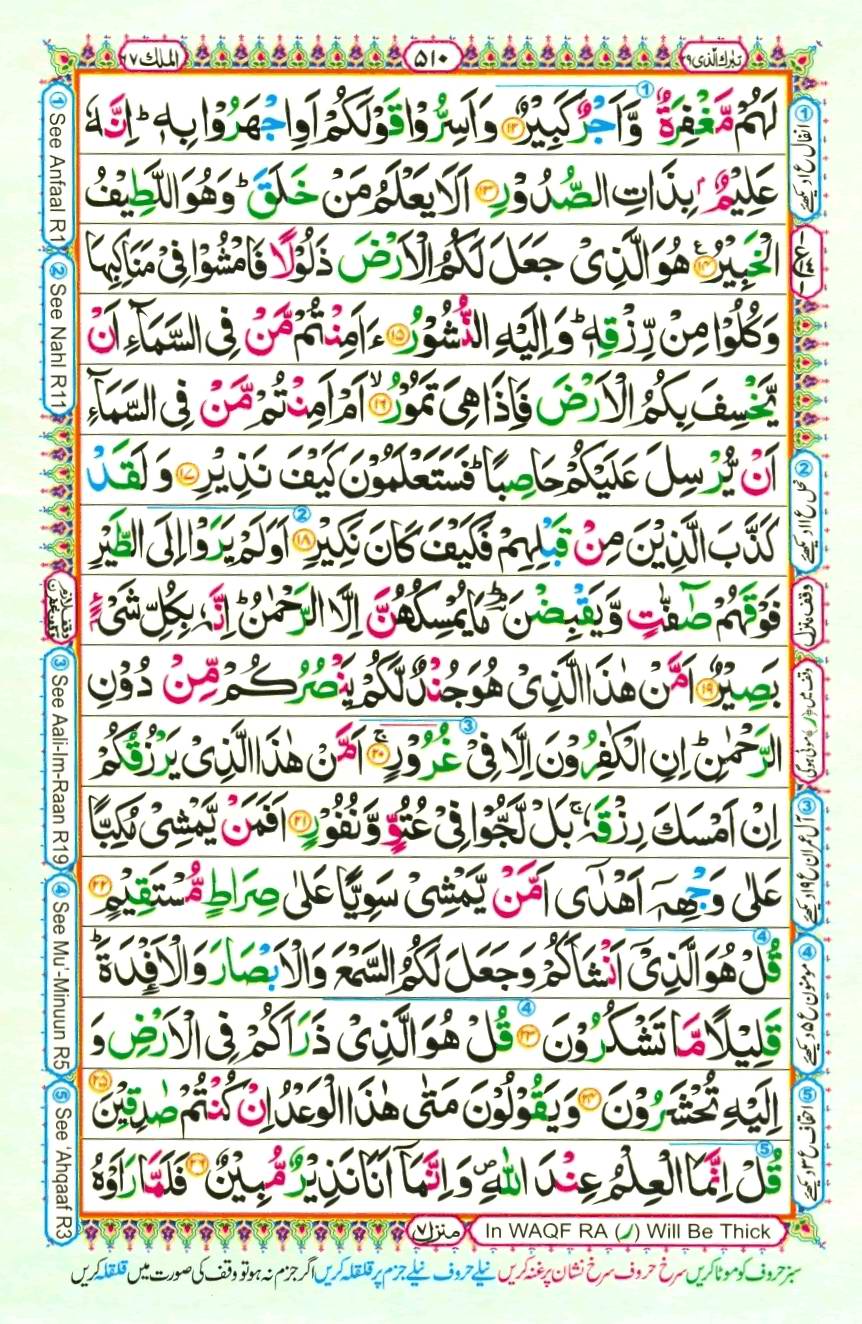 تبٰرك الذی ٢٩
٥١٠
الملك ٦٧
لَهُمْ مَّغْفِرَةٌ وَّاَجْرٌ كَبِيْرٌ ﴿١٢﴾ وَاَسِرُّوْا قَوْلَكُمْ اَوِاجْهَرُوْا بِهٖ ؕ اِنَّهٗ
عَلِيْمٌۢ بِذَاتِ الصُّدُوْرِ ﴿١٣﴾ اَلَا يَعْلَمُ مَنْ خَلَقَ ؕ وَهُوَ اللَّطِيْفُ
الْخَبِيْرُ ﴿١٤﴾ هُوَ الَّذِيْ جَعَلَ لَكُمُ الْاَرْضَ ذَلُوْلًا فَامْشُوْا فِيْ مَنَاكِبِهَا
وَكُلُوْا مِنْ رِّزْقِهٖ ؕ وَاِلَيْهِ النُّشُوْرُ ﴿١٥﴾ ءَاَمِنْتُمْ مَّنْ فِي السَّمَآءِ اَنْ
يَّخْسِفَ بِكُمُ الْاَرْضَ فَاِذَا هِيَ تَمُوْرُ ۙ﴿١٦﴾ اَمْ اَمِنْتُمْ مَّنْ فِي السَّمَآءِ
اَنْ يُّرْسِلَ عَلَيْكُمْ حَاصِبًا ؕ فَسَتَعْلَمُوْنَ كَيْفَ نَذِيْرِ ﴿١٧﴾ وَلَقَدْ
كَذَّبَ الَّذِيْنَ مِنْ قَبْلِهِمْ فَكَيْفَ كَانَ نَكِيْرِ ﴿١٨﴾ اَوَلَمْ يَرَوْا اِلَى الطَّيْرِ
فَوْقَهُمْ صٰٓفّٰتٍ وَّيَقْبِضْنَ ؔؕ مَا يُمْسِكُهُنَّ اِلَّا الرَّحْمٰنُ ؕ اِنَّهٗ بِكُلِّ شَيْءٍۭ
بَصِيْرٌ ﴿١٩﴾ اَمَّنْ هٰذَا الَّذِيْ هُوَ جُنْدٌ لَّكُمْ يَنْصُرُكُمْ مِّنْ دُوْنِ
الرَّحْمٰنِ ؕ اِنِ الْكٰفِرُوْنَ اِلَّا فِيْ غُرُوْرٍ ۚ﴿٢٠﴾ اَمَّنْ هٰذَا الَّذِيْ يَرْزُقُكُمْ
اِنْ اَمْسَكَ رِزْقَهٗ ۚ بَلْ لَّجُّوْا فِيْ عُتُوٍّ وَّنُفُوْرٍ ﴿٢١﴾ اَفَمَنْ يَّمْشِيْ مُكِبًّا
عَلٰى وَجْهِهٖٓ اَهْدٰٓى اَمَّنْ يَّمْشِيْ سَوِيًّا عَلٰى صِرَاطٍ مُّسْتَقِيْمٍ ﴿٢٢﴾
قُلْ هُوَ الَّذِيْٓ اَنْشَاَكُمْ وَجَعَلَ لَكُمُ السَّمْعَ وَالْاَبْصَارَ وَالْاَفْـِٕدَةَ ؕ
قَلِيْلًا مَّا تَشْكُرُوْنَ ﴿٢٣﴾ قُلْ هُوَ الَّذِيْ ذَرَاَكُمْ فِي الْاَرْضِ وَ
اِلَيْهِ تُحْشَرُوْنَ ﴿٢٤﴾ وَيَقُوْلُوْنَ مَتٰى هٰذَا الْوَعْدُ اِنْ كُنْتُمْ صٰدِقِيْنَ ﴿٢٥﴾
قُلْ اِنَّمَا الْعِلْمُ عِنْدَ اللّٰهِ ۪ وَاِنَّمَآ اَنَا نَذِيْرٌ مُّبِيْنٌ ﴿٢٦﴾ فَلَمَّا رَاَوْهُ
① انفال ع ١ دیکھئے
② نحل ع ١١ دیکھئے
وقف منزل
③ آل عمران ع ١٩ دیکھئے
④ مومنون ع ٥ دیکھئے
⑤ احقاف ع ٣ دیکھئے
① See Anfaal R1
② See Nahl R11
③ See Aali-Im-Raan R19
④ See Mu'-Minuun R5
⑤ See 'Ahqaaf R3
منزل ٧
In WAQF RA (ر) Will Be Thick
سبز حروف کو موٹا کریں سرخ حروف سرخ نشان پر غنہ کریں نیلے حروف نیلے جزم پر قلقلہ کریں اگر جزم نہ ہو تو وقف کی صورت میں قلقلہ کریں